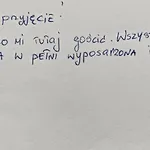 przyjęcie!
o mi tutaj gościć. Wszyst
A w pełni wyposażona i